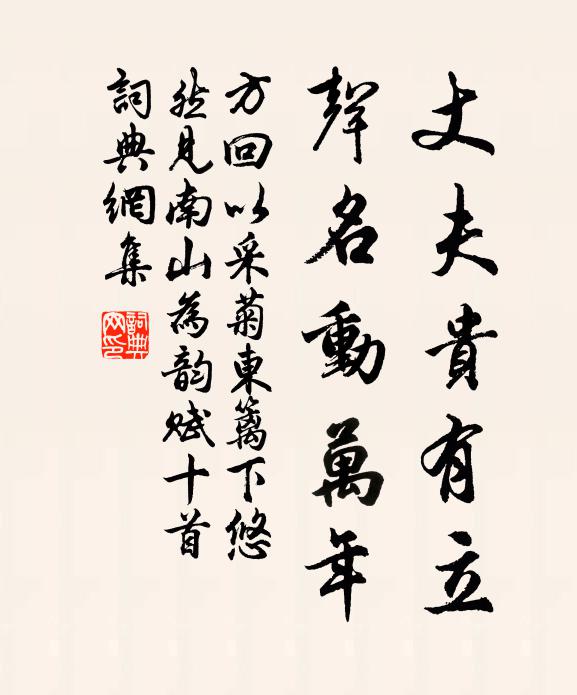 丈夫貴有立
聲名動萬年
方回以采菊東籬下悠
然見南山為韵賦十首
詞典網集
詞典
网印